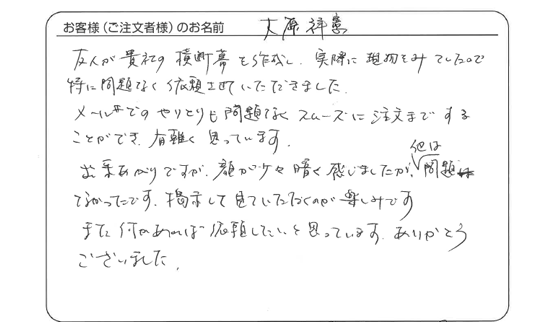 お客様（ご注文者様）のお名前 大原
友人が貴社の横断幕を作成し、実際に現物をみていたので
特に問題なく依頼していただきました。
メール等でのやりとりも問題なくスムーズに注文まですることができ、有難く思っています。
出来あがりですが、顔が少々暗く感じましたが、他は問題
なかったです。掲示して見ていただくのが楽しみです
また何かあれば依頼したいと思っています。ありがとう
ございました。